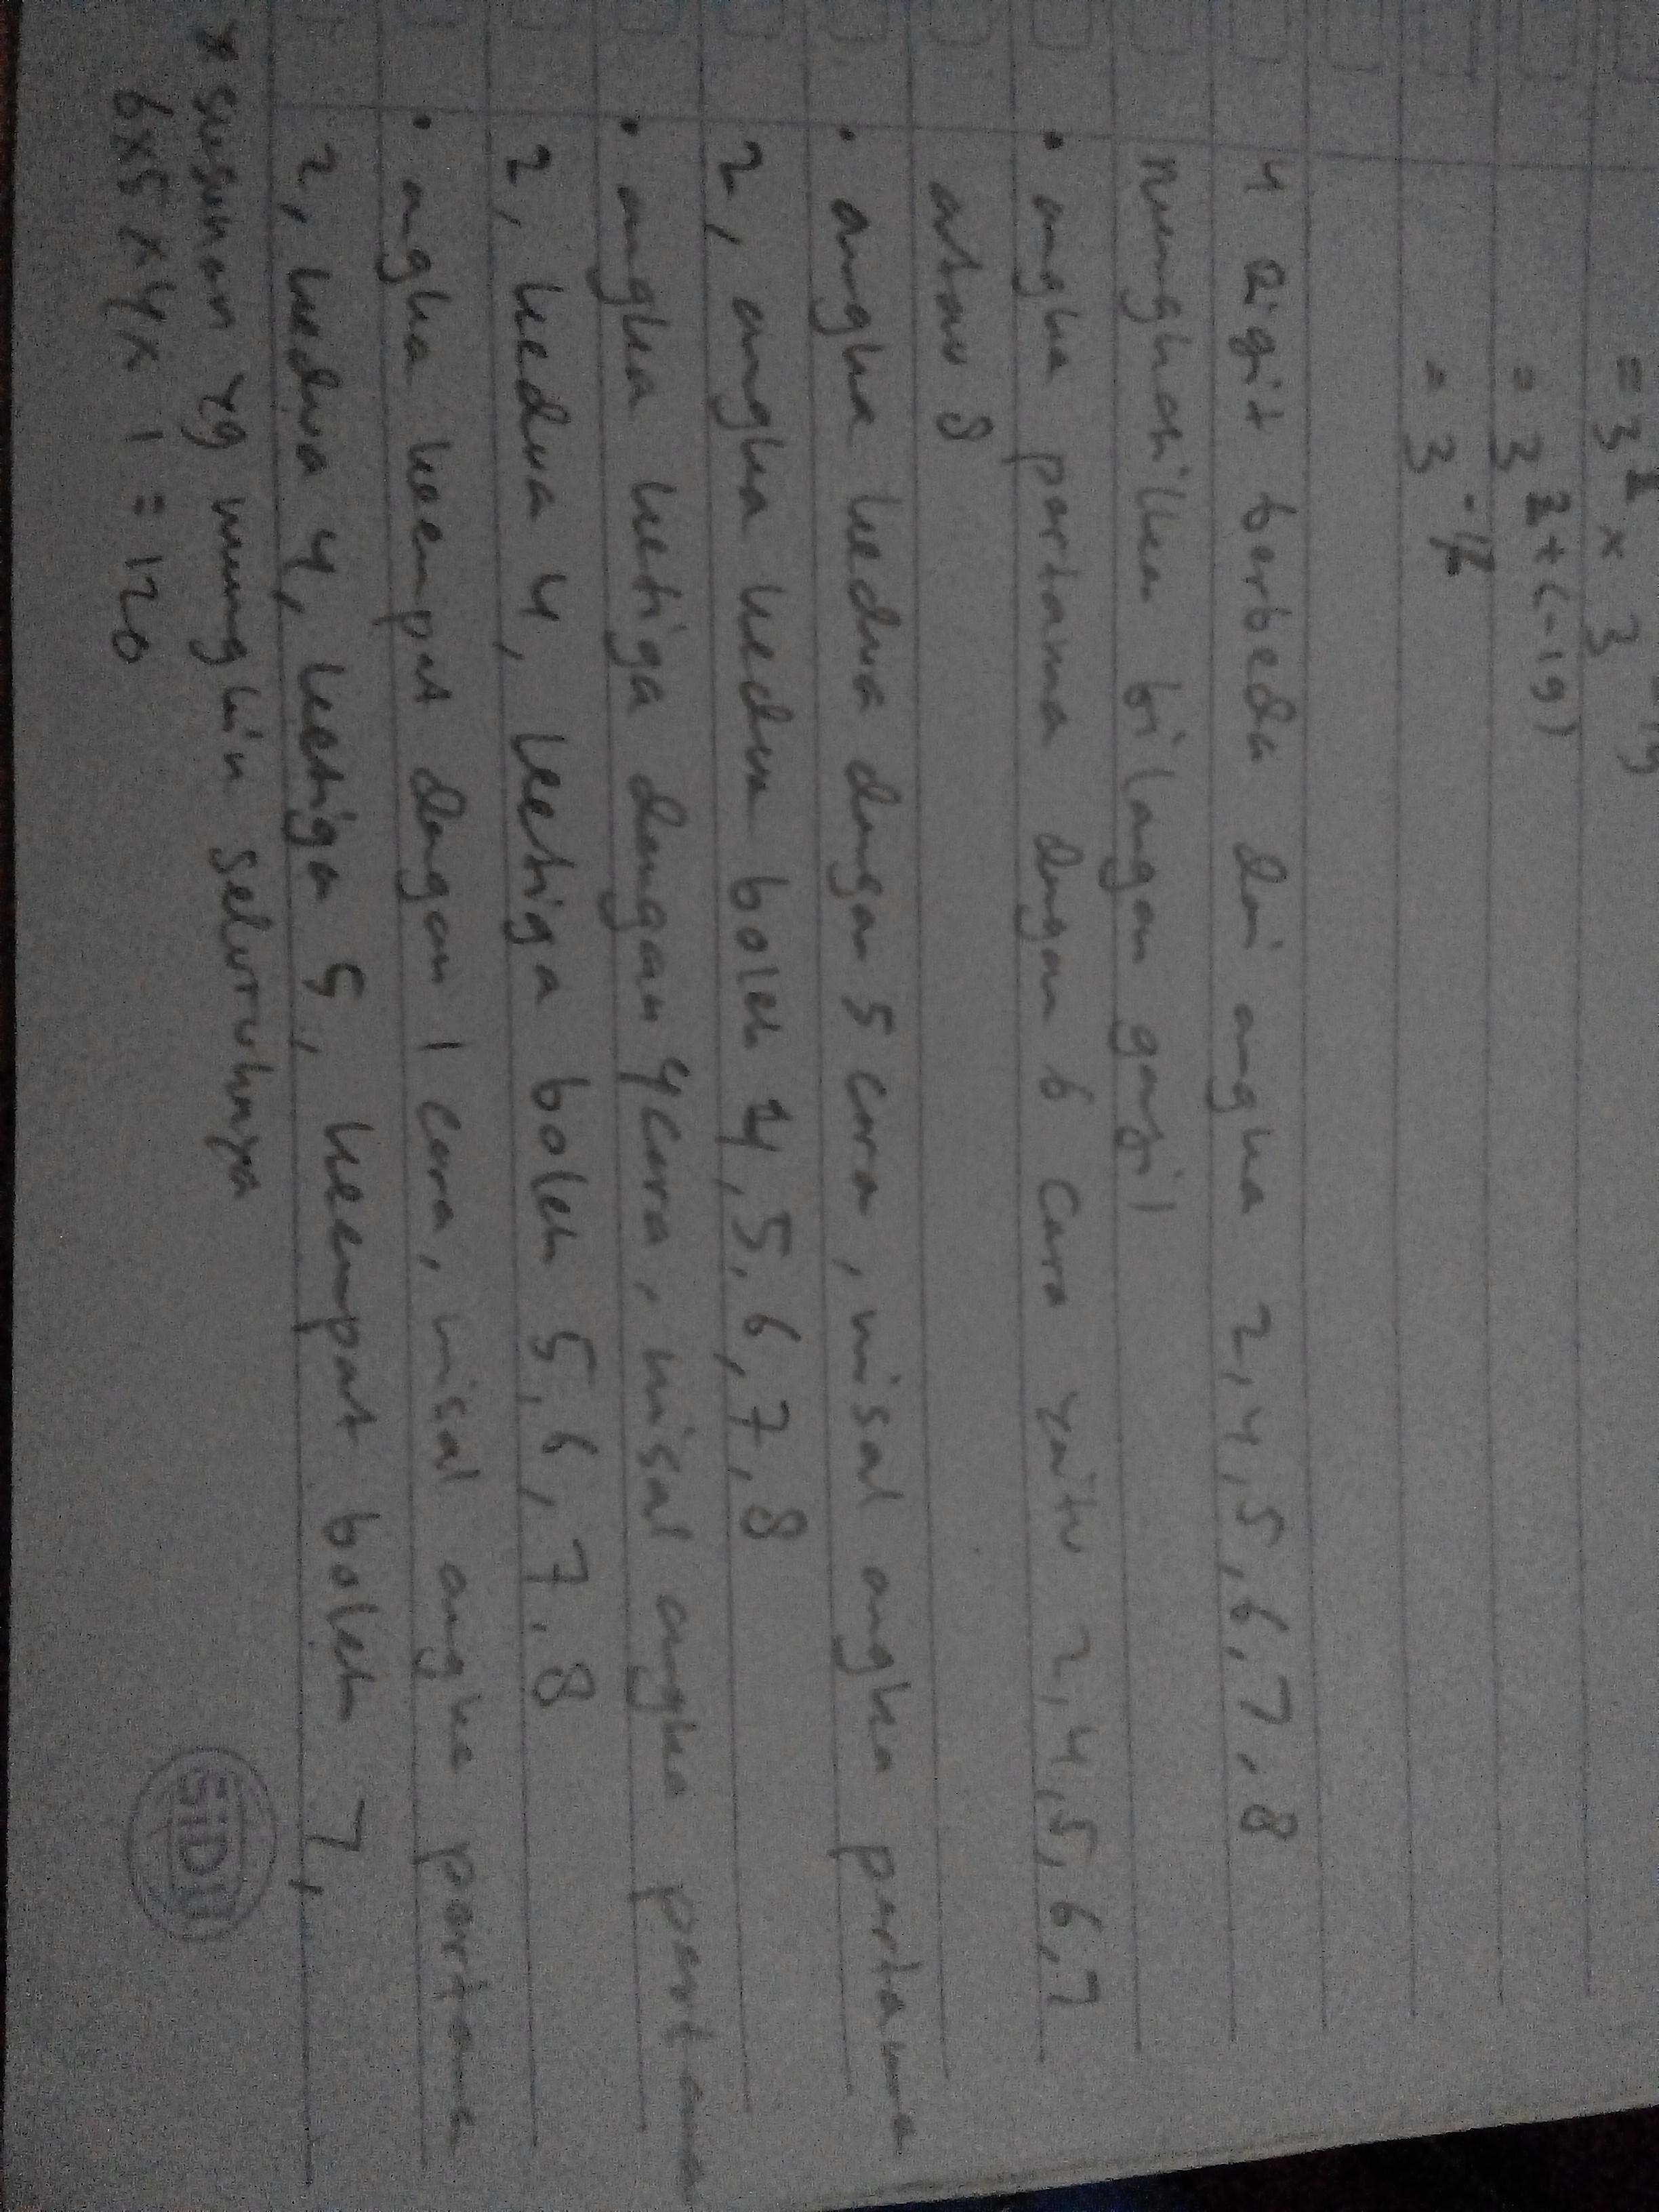 = 3² × 3⁻¹⁹
= 3²⁺⁽⁻¹⁹⁾
4 digit berbeda dri angka 2,4,5,6,7,8
menghasilkan bilangan ganjil
• angka pertama dengan 6 cara yaitu 2,4,5,6,7
atau 8
• angka kedua dengan 5 cara, misal angka pertama
2, angka kedua boleh 4,5,6,7,8
• angka ketiga dengan 4 cara, misal angka pertama
2, kedua 4, ketiga boleh 5,6,7,8
• angka keempat dengan 1 cara, misal angka pertama
2, kedua 4, ketiga 5, keempat boleh 7,
* susunan yg mungkin seluruhnya
6×5×4×1 = 120
SiDU